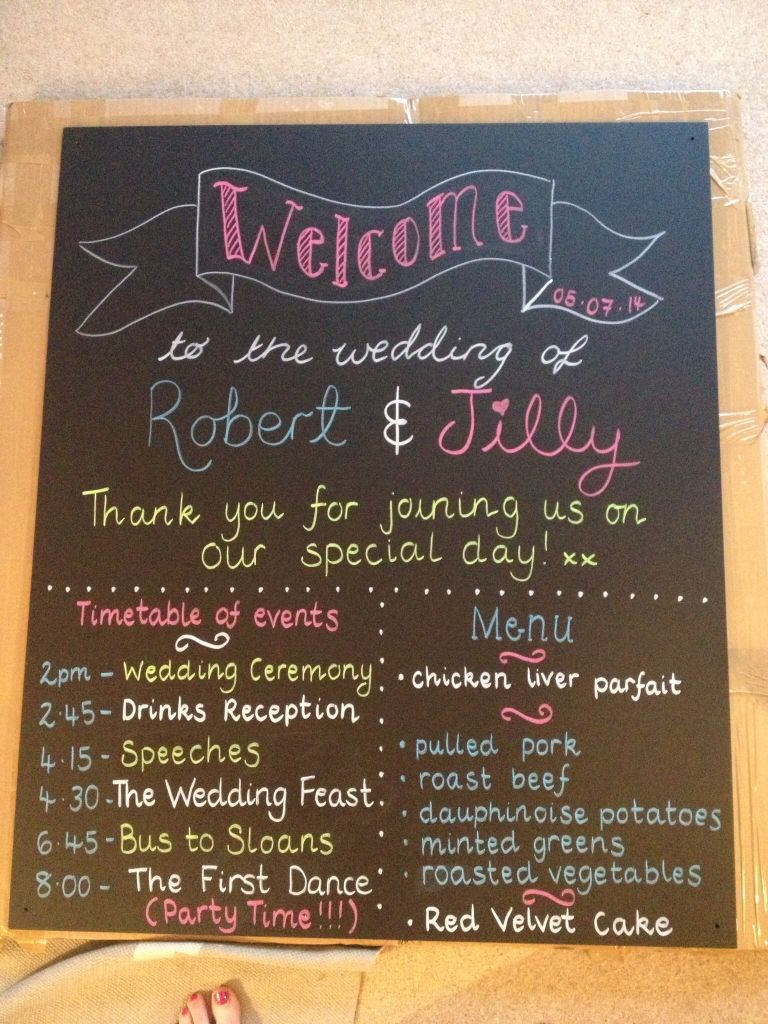 Welcome
05.07.14
to the wedding of
Robert & Jilly
Thank you for joining us on
our special day! xx
Timetable of events
2pm - Wedding Ceremony
2.45 - Drinks Reception
4.15 - Speeches
4.30 - The Wedding Feast
6.45 - Bus to Sloans
8.00 - The First Dance
(Party Time!!!)
Menu
• chicken liver parfait
• pulled pork
• roast beef
• dauphinoise potatoes
• minted greens
• roasted vegetables
• Red Velvet Cake